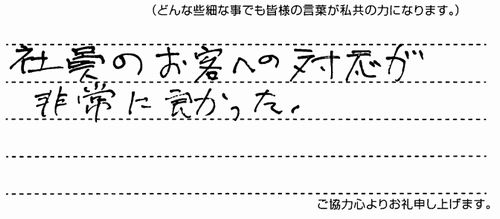 (どんな些細な事でも皆様の言葉が私共の力になります。)
社員のお客への対応が
非常に良かった。
ご協力心よりお礼申し上げます。